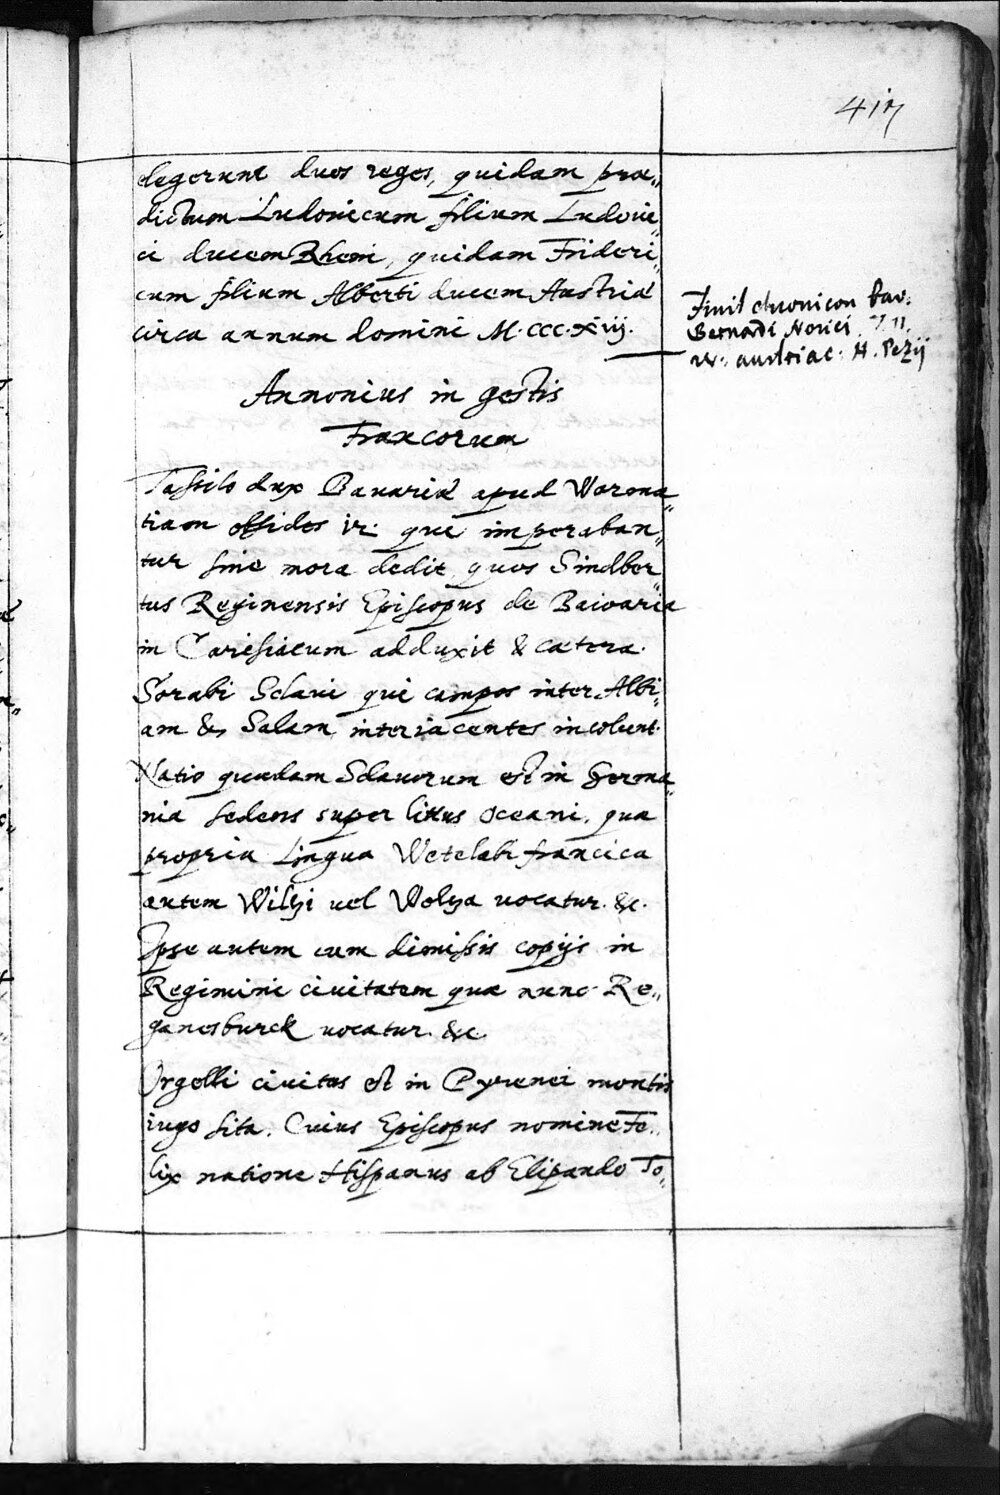 417
elegerunt duos reges, quidam præ„
dictum Ludovicum filium Ludovi„
ci ducem Rheni, quidam Frideri„
cum filium Alberti ducem Austriæ
circa annum domini M.CCC.Xiiij.
Finit chronicon bav:
Bernardi Norici. T. II.
rer: austriac: H. Pezij
Annonius in gestis
Francorum
Tassilo dux Bavariæ apud Worma„
tiam obsides ir. qui imperaban„
tur sine mora dedit quos Sindber„
tus Reginensis Episcopus de Baivaria
in Carisiacum adduxit & cætera.
Sorabi Sclavi qui campos inter Albi„
am & Salam interiacentes incolunt.
Natio quædam Sclavorum est in Germa„
nia sedens super littus Oceani, quæ
propria Lingua Wetelabi francica
autem Wilzi vel Wolza vocatur. &c.
Ipse autem cum dimissis copijs in
Regimini civitatem quæ nunc Re„
ganesburck vocatur. &c.
Orgelli civitas est in Pyrenei montis
iugo sita. Cuius Episcopus nomine Fe„
lix natione Hispanus ab Elipando To„